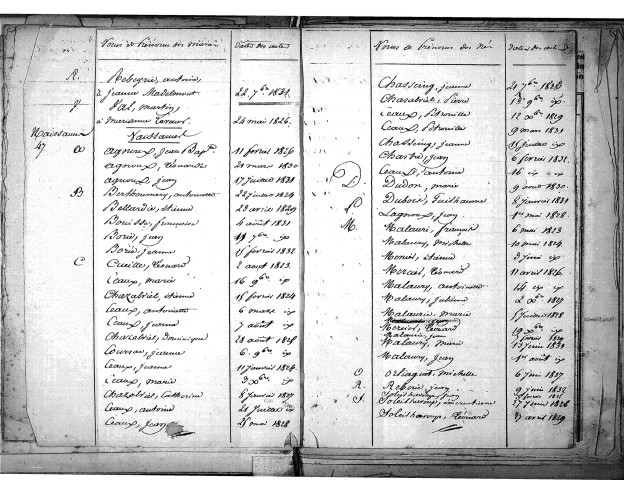 Noms et Prénoms des mariés Dates des actes
R. Rebeyrie, antoine,
& jeanne Madelmont 22, 7bre 1831.
V Val, martin,
à marianne 24 mai 1826.
Naissances
47
Naissances
A agnoux, jean Bapte. 11 fevrier 1826
agnoux, Léonarde 21 mars 1830
agnoux, jean 17 juillet 1831
B Berthoumeury, antoinette 22 juillet 1824
Bellardie, étienne 23 avril 1829
Boussé, françoise 4 août 1831
Borie, jean 11 7bre id
Borie, jeanne 15 fevrier 1832
C Cueille, Léonard 2 aout 1823.
Ceaux, marie 16 9bre id
Chazabriel, étienne 15 fevrier 1824
Ceaux, antoinette 6 mars id
Ceaux, jeanne 7 août id
Chazabriel, dominique 28 août 1828
Cournau, jeanne 6. 9bre id
Ceaux, jeanne 11 janvier 1824
Ceaux, marie 3 Xbre id
Chazabriel, Catherine 8 janvier 1827
Ceaux, antoine 21 juillet id
Ceaux, jean 25 mai 1828
Noms et Prénoms des Nés Dates des actes
Chasseing, jeanne 21 7bre 1828
Chazabriel, Pierre 12 9bre id
Ceaux, Petronille 12 Xbre 1829
Ceaux, Petronille 9 mars 1831
Chasseing, jeanne 15 juillet id
Chastre, jean 6 fevrier 1832.
Ceaux, antoine 16 id id
D. Dudon, marie 9 août 1830.
Dubois, Guilhaume 8 janvier 1831
L Lagnoux, jean 1er mai 1828.
M. Malaury, françois 6 mai 1823
Malaury, michelle 10 mai 1824
Moniés, étienne 3 juin id
Mercier, Léonard 11 avril 1826.
Malaury, antoinette 14 id id
Malaury, julienne 2 Xbre 1827
Malaurie, marie 5 juillet 1828
Mercier, Léonard 29 Xbre id
Malaurie, jean 1829
Malaury, marie 13 fevrier 1830
Malaury, jean 1er août id
O Orliaguet, michelle 6 juin 1827
R. Reberie, jean 9 juin 1832
S. Soleilhavoup, jean
Soleilhavoup, 27 1828
Soleilhavoup, Léonard 13 avril 1829